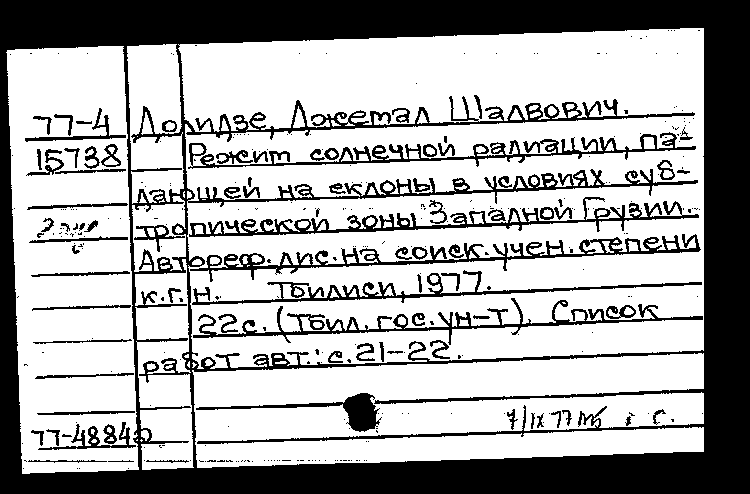 77-4 Долидзе, Джетал Шалвович.
15738 Режим солнечной радиации, па-
дающей на склоны в условиях суб-
тропической зоны Западной Грузии.
Автореф. дис. на соиск. учен. степени
к.г.н. Тбилиси, 1977.
22с. (Тбил. гос. ун-т). Список
работ авт.: с. 21-22.
7/IX 77 с.
77-48840